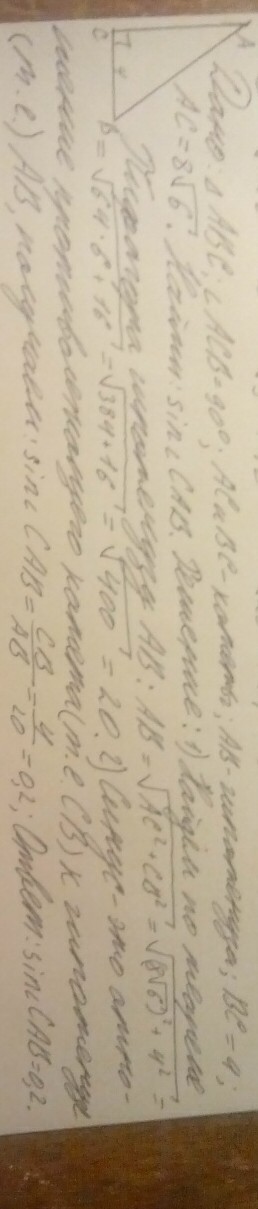 A
C 4 B
Дано: Δ ABC; ∠ACB=90°; AC и BC - катеты; AB - гипотенуза; BC = 4;
AC = 8√6. Найти: sin∠CAB. Решение: 1) Найдём по теореме
Пифагора гипотенузу AB: AB = √AC² + CB² = √(8√6)² + 4² =
= √64·6+16 = √384+16 = √400 = 20. 2) Синус - это отно-
шение противолежащего катета (т.е CB) к гипотенузе
(т.е.) AB, получаем: sin∠CAB = CB/AB = 4/20 = 0,2; Ответ: sin∠CAB=0,2.